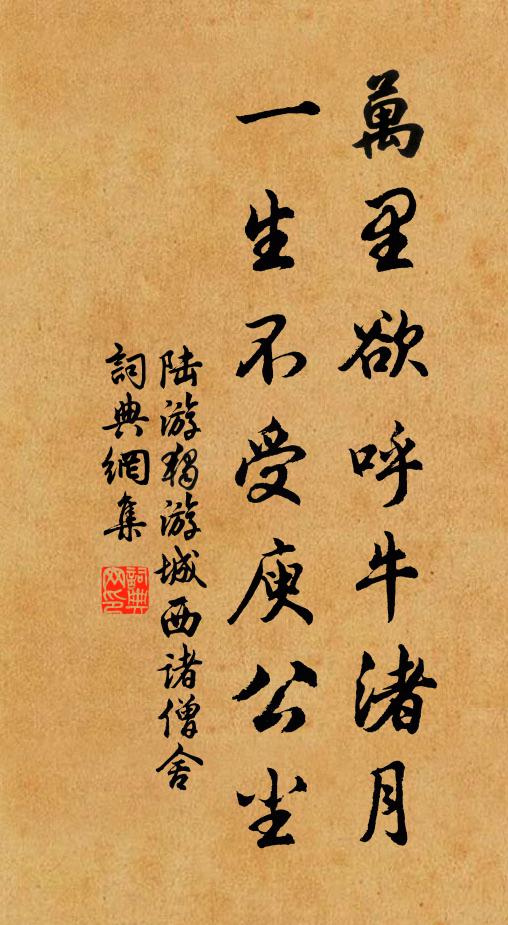 萬里欲呼牛渚月
一生不受庾公尘
陆游獨游城西诸僧舍
詞典網集
詞典网印